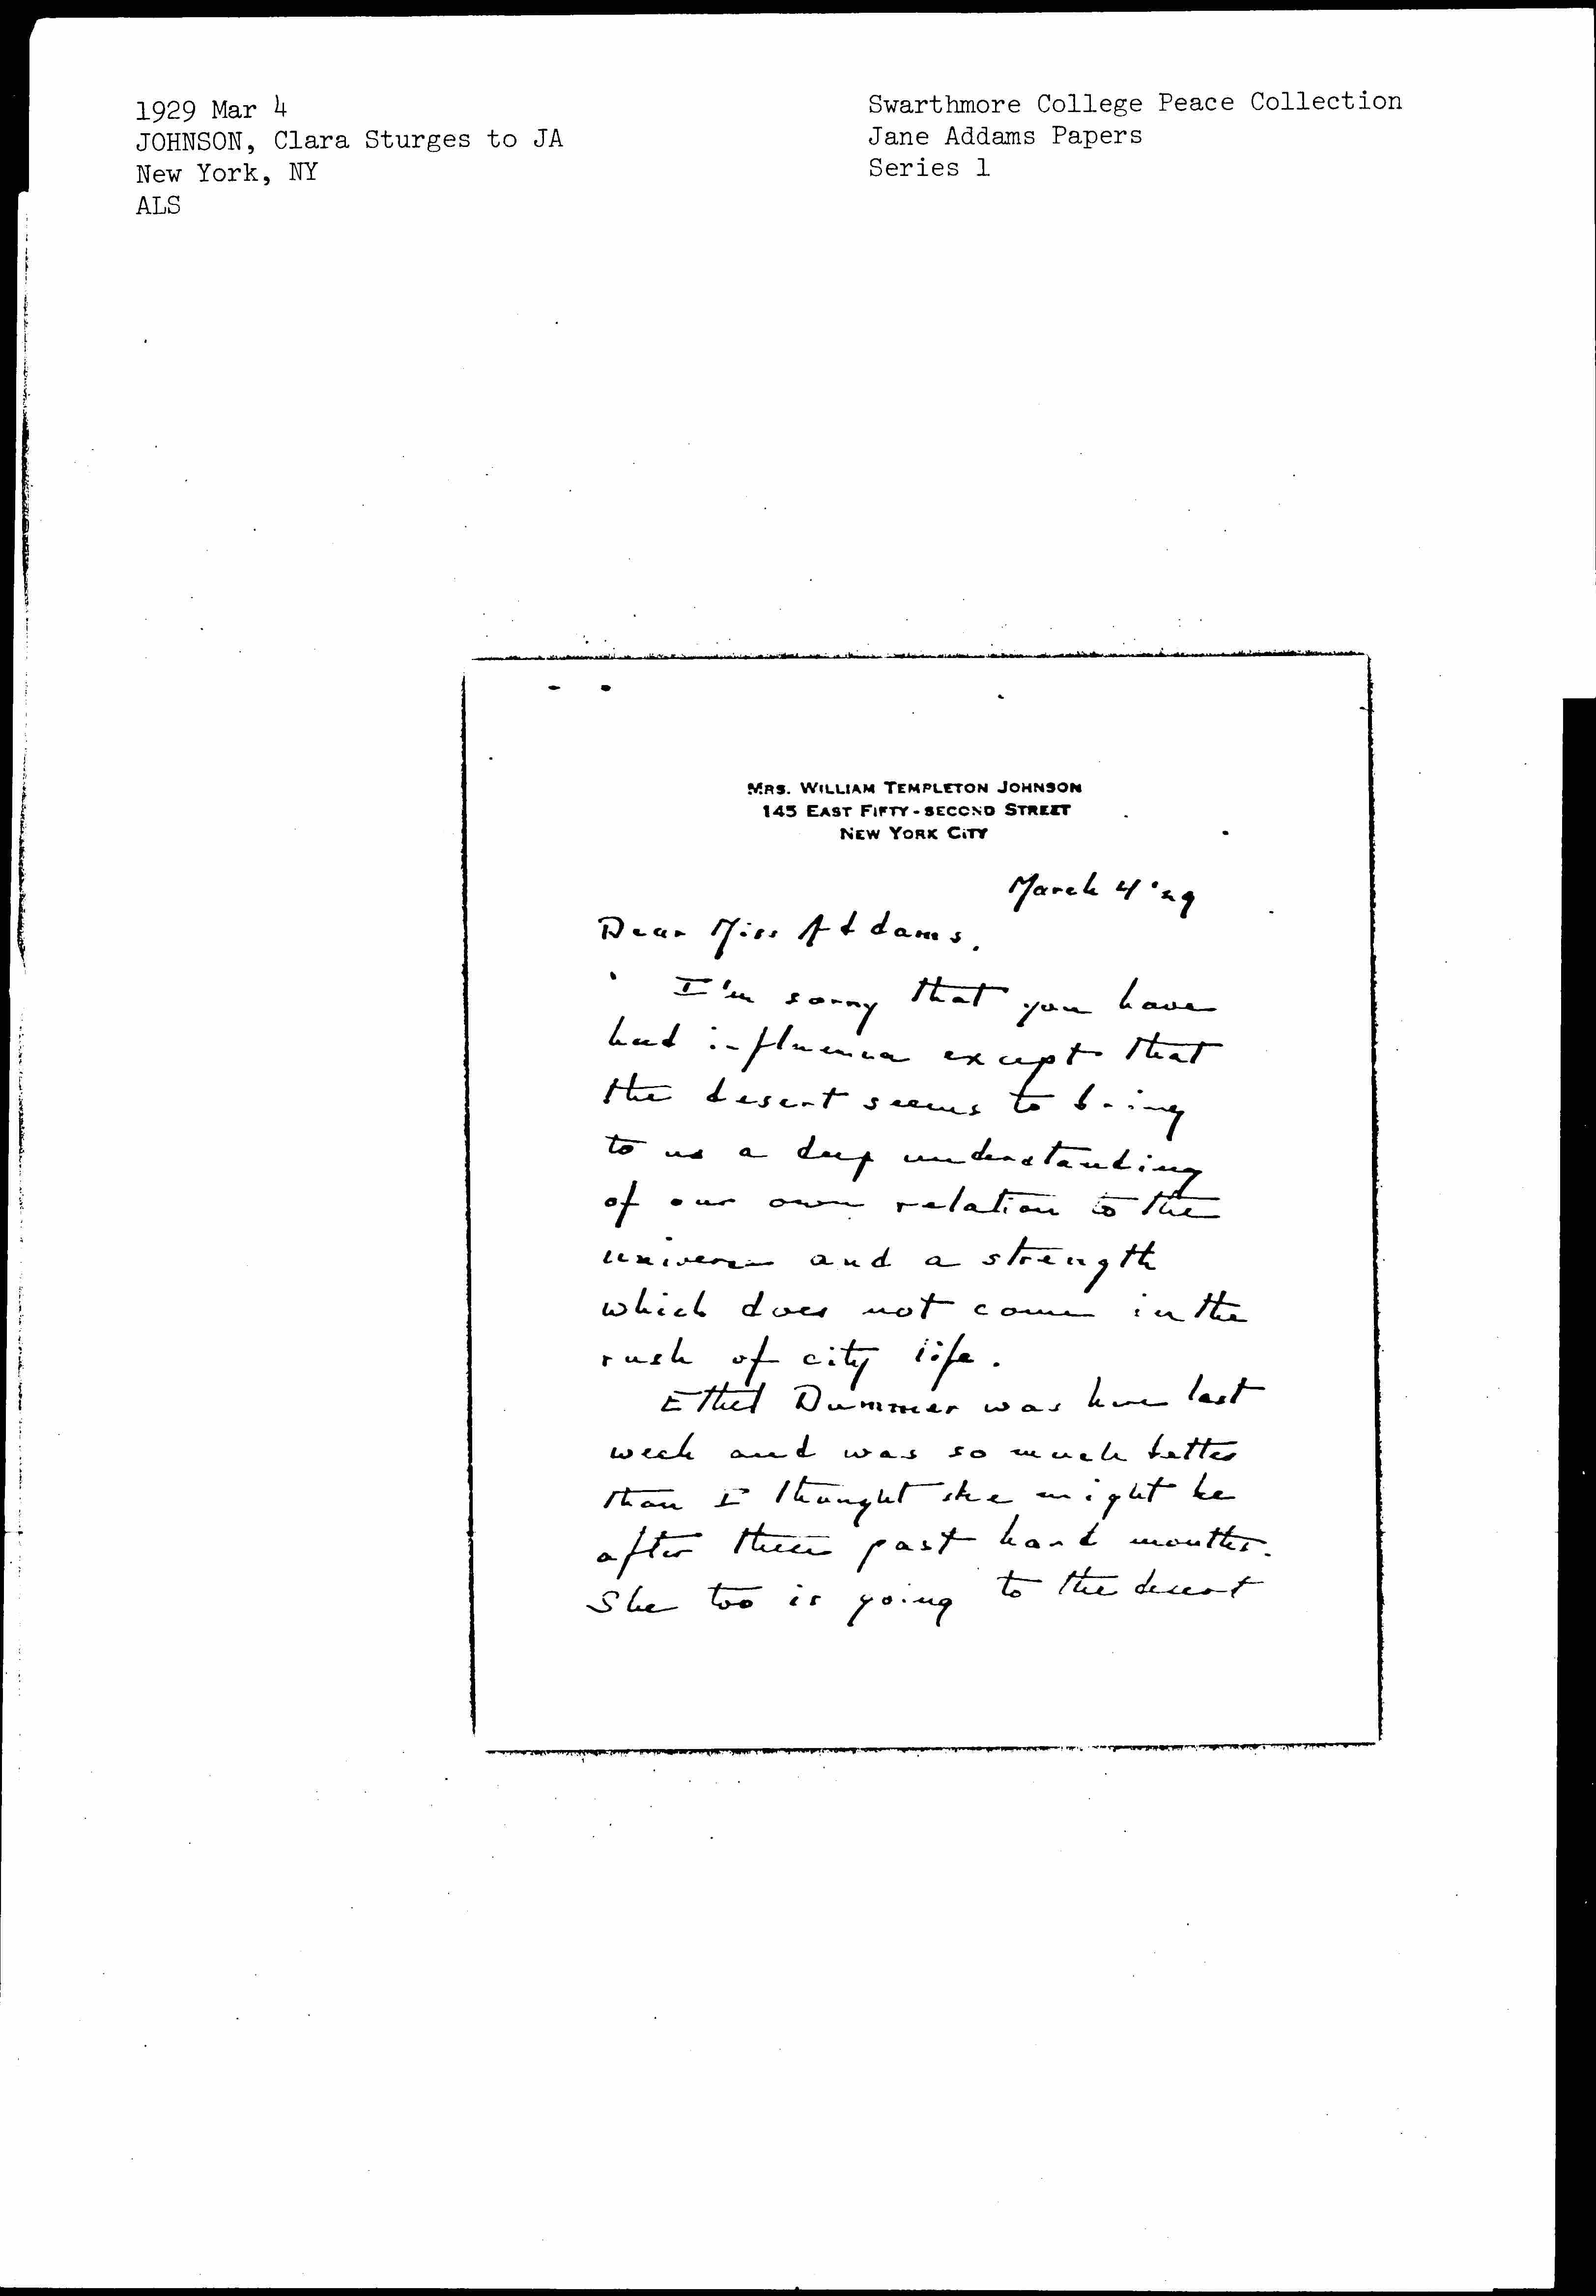 1929 Mar 4
JOHNSON, Clara Sturges to JA
New York, NY
ALS
Swarthmore College Peace Collection
Jane Addams Papers
Series 1
MRS. WILLIAM TEMPLETON JOHNSON
145 EAST FIFTY-SECOND STREET
NEW YORK CITY
March 4 '29
Dear Miss Addams,
I'm sorry that you have
had influenza except that
the desert seems to bring
to us a deep understanding
of our own relation to the
universe and a strength
which does not come in the
rush of city life.
Ethel Dummer was here last
week and was so much better
than I thought she might be
after these past hard months.
She too is going to the desert